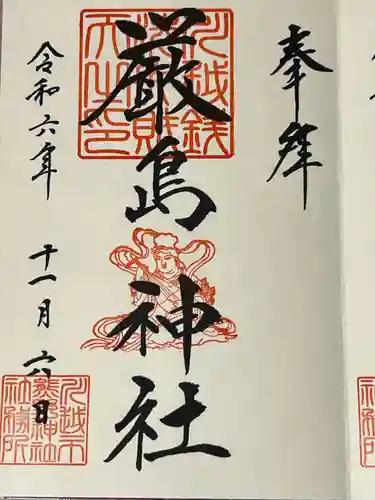 奉拝
厳島神社
令和六年 十一月 六日
川越銭洗弁財天之印
川越市熊野神社社務所